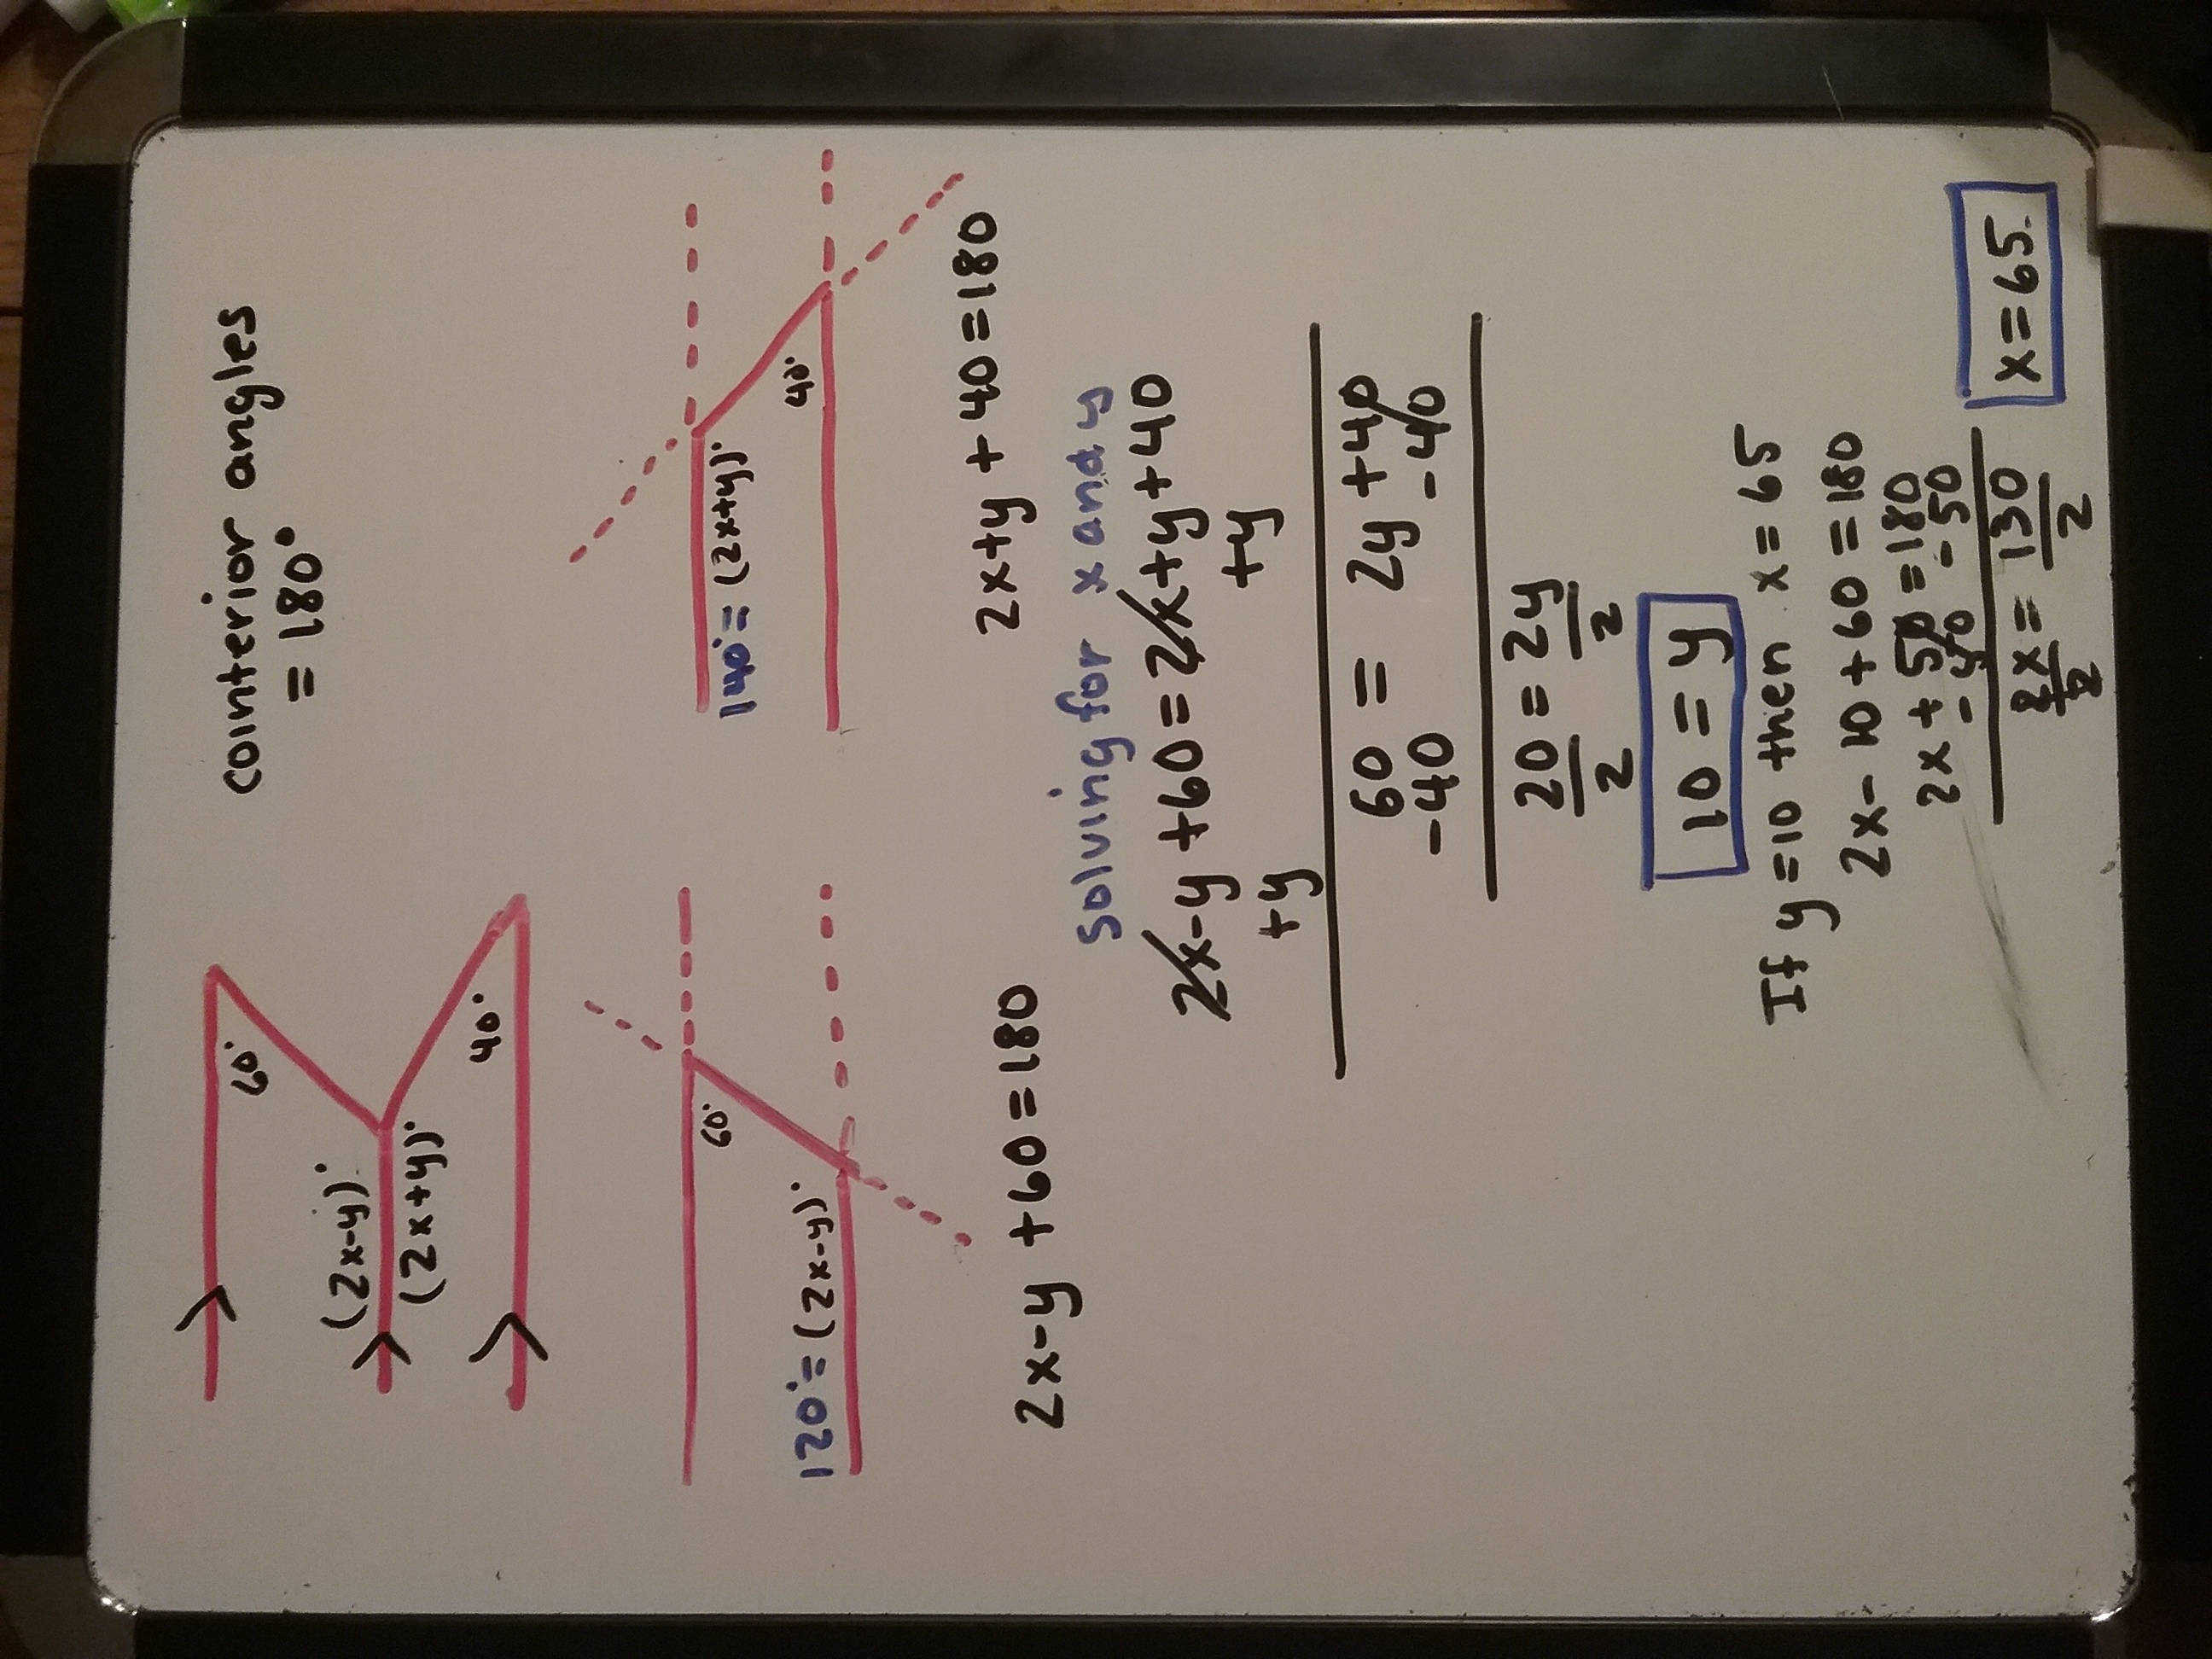 cointerior angles
= 180°
60°
(2x-y)°
(2x+y)°
40°
60°
120° = (2x-y)°
140° = (2x+y)°
40°
2x-y +60 = 180
2x+y + 40 = 180
Solving for x and y
2x-y +60 = 2x+y+40
+y +y
60 = 2y +40
-40 -40
20 = 2y
2 2
10 = y
If y=10 then x = 65
2x - 10 + 60 = 180
2x + 50 = 180
-50
2x = 130
2 2
x = 65